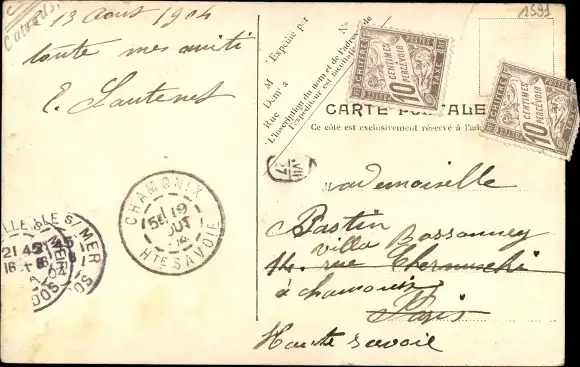 Calvados.
13 Aout 1904
toute mes amitié
E. Lautenet
1591
M
Expédié par
Nº
Dom' a
Rue
L'inscription du nom et de l'adresse de
l'Expéditeur est facultative
CHIFFRE POSTES TAXE
10 CENTIMES A PERCEVOIR
CHIFFRE POSTES TAXE
10 CENTIMES A PERCEVOIR
CARTE POSTALE
Ce côté est exclusivement réservé à l'ad
Mademoiselle
Pastin
villa Bossonney
14. rue Chernuschi
à chamonix
Paris
Haute savoie
CHAMONIX
5E 19
OUT
HTE SAVOIE
S/MER
21 45
16
04